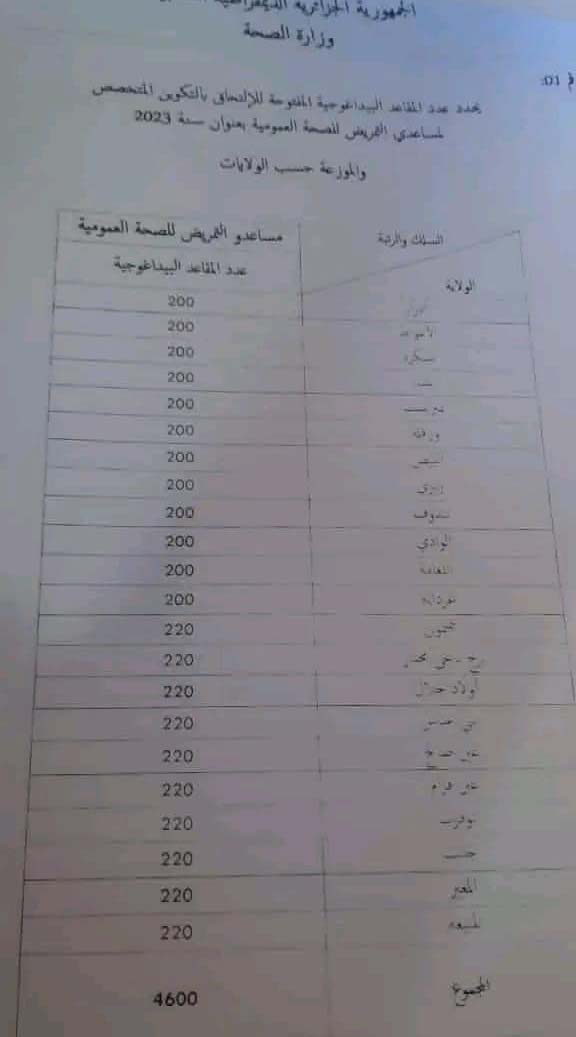 الجمهورية الجزائرية الديمقراطية
وزارة الصحة
01
يحدد عدد المقاعد البيداغوجية المفتوحة للإلتحاق بالتكوين المتخصص
لمساعدي التمريض للصحة العمومية بعنوان سنة 2023
والموزعة حسب الولايات
السلك والرتبة مساعدو التمريض للصحة العمومية
الولاية عدد المقاعد البيداغوجية
200
200
بسكرة 200
200
تمنراست 200
ورقلة 200
البيض 200
إليزي 200
تندوف 200
الوادي 200
النعامة 200
غرداية 200
تيميمون 220
برج باجي مختار 220
أولاد جلال 220
بني عباس 220
عين صالح 220
عين قزام 220
توقرت 220
جانت 220
المغير 220
المنيعة 220
المجموع 4600